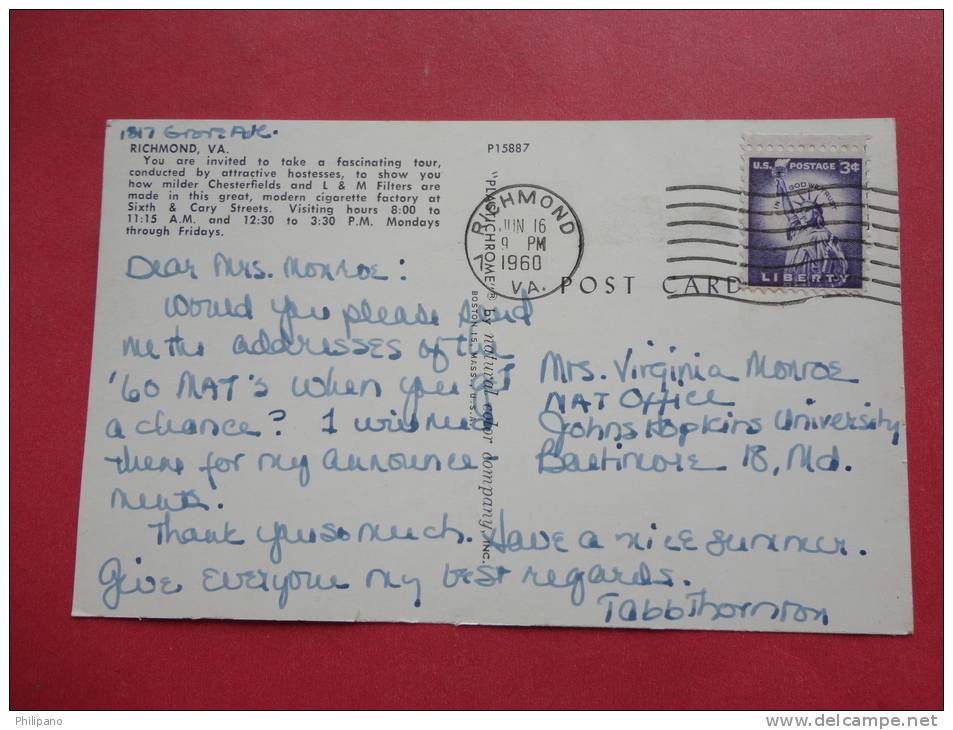 1817 Grove Ave.
RICHMOND, VA.
You are invited to take a fascinating tour,
conducted by attractive hostesses, to show you
how milder Chesterfields and L & M Filters are
made in this great, modern cigarette factory at
Sixth & Cary Streets. Visiting hours 8:00 to
11:15 A.M. and 12:30 to 3:30 P.M. Mondays
through Fridays.
P15887
"PLASTICHROME"® by natural color company, INC.
BOSTON 15, MASS., U.S.A.
RICHMOND
JUN 16
9 PM
1960
VA.
U.S. POSTAGE 3¢
IN GOD WE TRUST
LIBERTY
POST CARD
Dear Mrs. Monroe:
Would you please send
me the addresses of the
'60 MAT's when you get
a chance? I will need
them for my announce
ments.
Thank you so much. Have a nice summer.
Give everyone my best regards.
Tabb Thornton
Mrs. Virginia Monroe
MAT Office
Johns Hopkins University
Baltimore 18, Md.
Philipano
www.delcampe.net